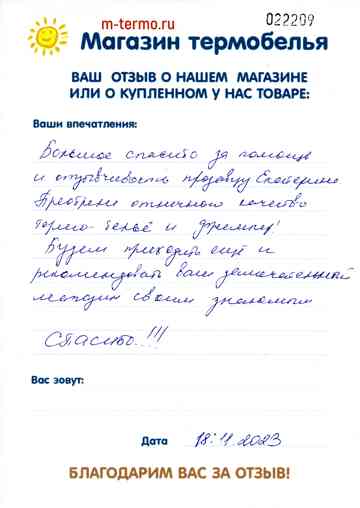 m-termo.ru
022209
Магазин термобелья
ВАШ ОТЗЫВ О НАШЕМ МАГАЗИНЕ
ИЛИ О КУПЛЕННОМ У НАС ТОВАРЕ:
Ваши впечатления:
Большое спасибо за помощь
и отзывчивость продавцу Екатерине
Приобрели отличного качества
термо-бельё и фремпы!
Будем приходить ещё и
рекомендовать ваш замечательный
магазин своим знакомым
СПАСИБО!!!
Вас зовут:
Дата 18.11.2023
БЛАГОДАРИМ ВАС ЗА ОТЗЫВ!